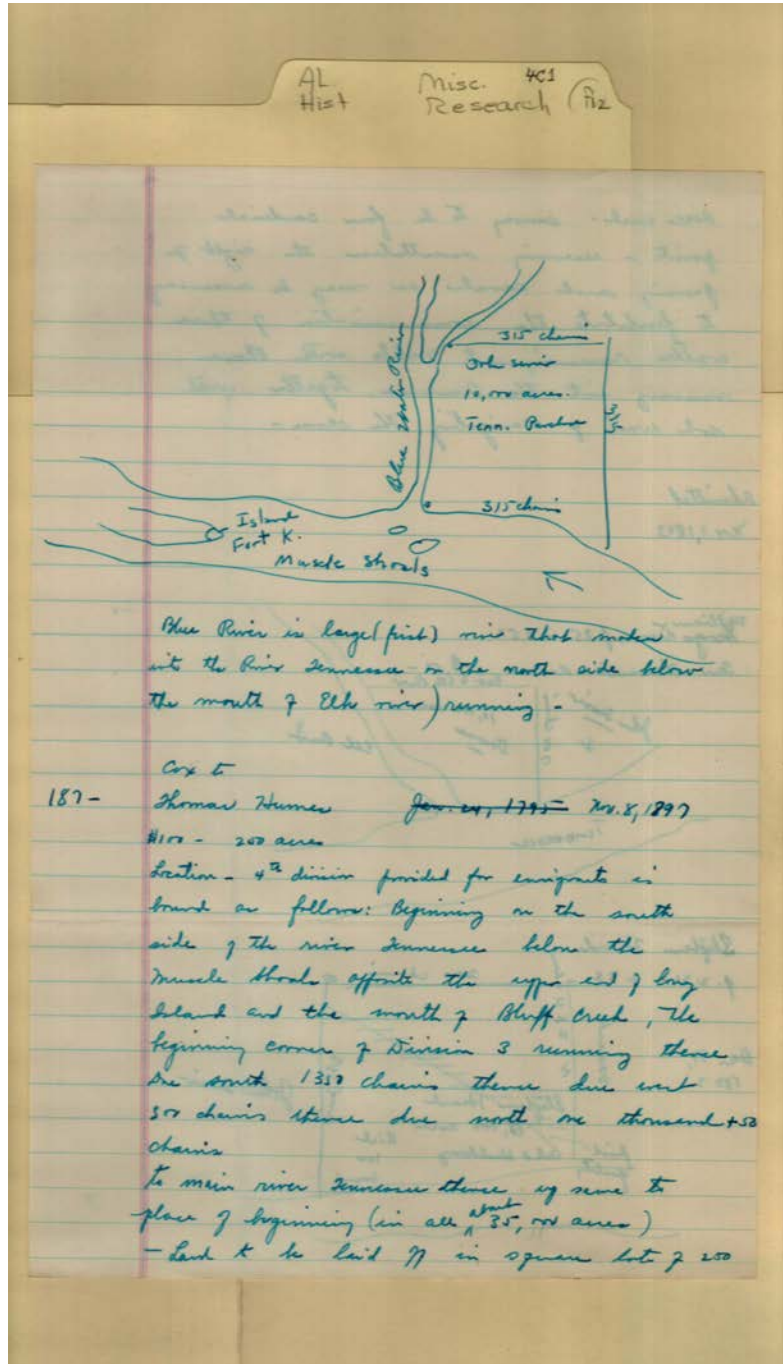 AL Misc. 4C1
Hist Research
315 chains
10,000 acres.
Tenn.
315
Blue Water River
315 chains
Island
Fort K.
Muscle Shoals
Blue River is large (first) river that makes
into the River Tennessee on the north side below
the mouth of Elk river) running -
Cox to
187- Thomas Humes Jan. 24, 1795 Nov. 8, 1897
$100 - 200 acres
Location - 4th division provided for emigrants is
bound as follows: Beginning on the south
side of the river Tennessee below the
Muscle Shoals opposite the upper end of long
Island and the mouth of Bluff Creek, The
beginning corner of Division 3 running thence
Due south 1350 chains thence due west
300 chains thence due north one thousand + 50
chains
to main river Tennessee thence up same to
place of beginning (in all about 35,000 acres)
- Land to be laid off in square lots of 200